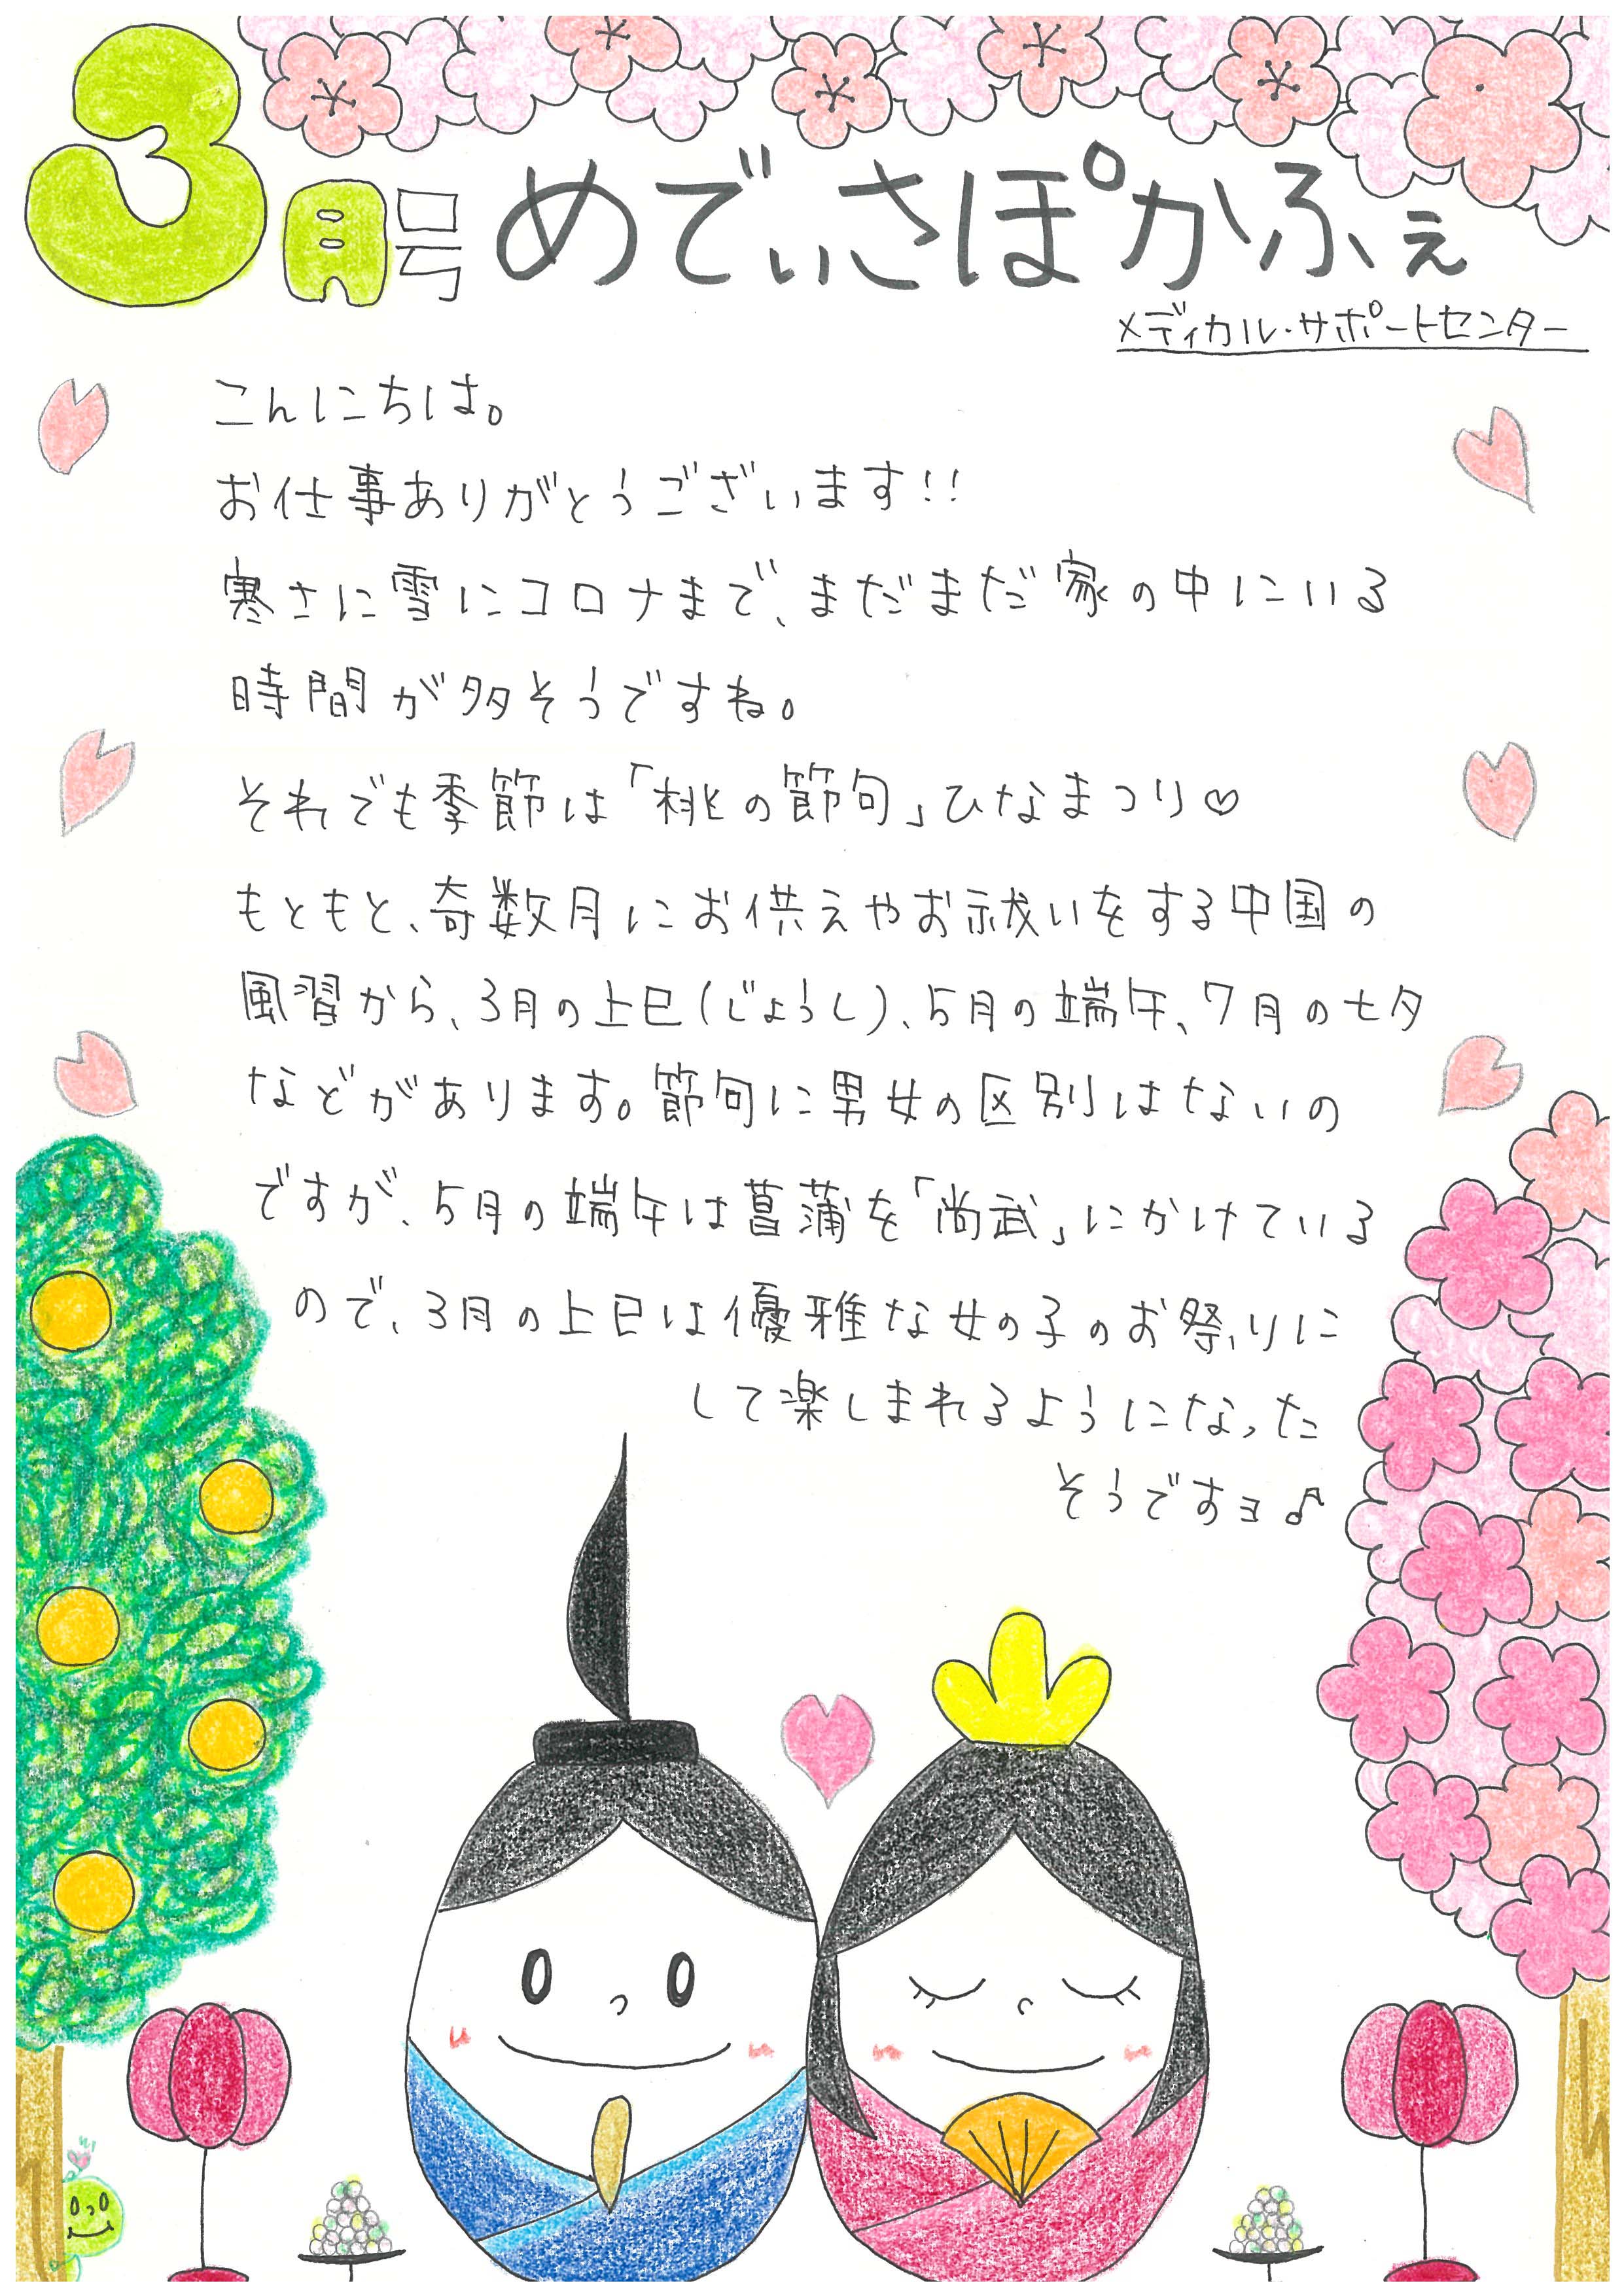 3月号 めでぃさぽかふぇ
メディカル・サポートセンター
こんにちは。
お仕事ありがとうございます!!
寒さに雪にコロナまで、まだまだ家の中にいる
時間が多そうですね。
それでも季節は「桃の節句」ひなまつり♡
もともと、奇数月にお供えやお祓いをする中国の
風習から、3月の上巳(じょうし)、5月の端午、7月の七夕
などがあります。節句に男女の区別はないの
ですが、5月の端午は菖蒲を「尚武」にかけている
ので、3月の上巳は優雅な女の子のお祭りに
して楽しまれるようになった
そうですョ♪